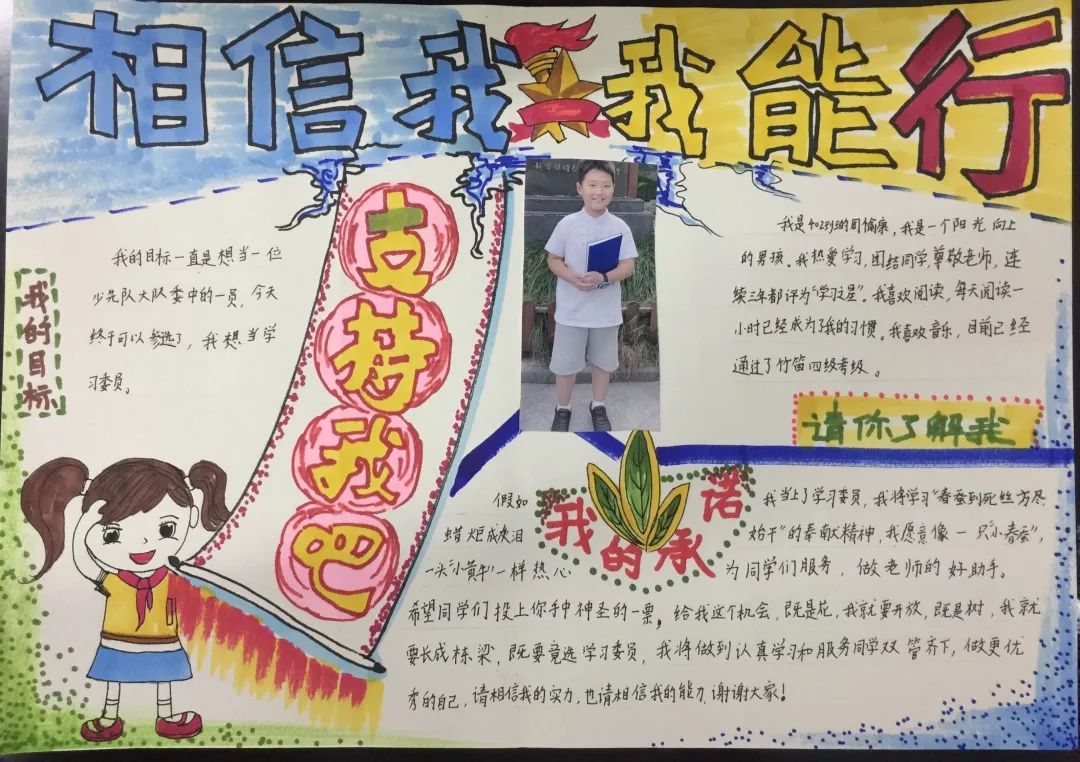 相信我我能行
支持我吧
我的目标
我的目标一直是想当一位
少先队大队委中的一员，今天
终于可以参选了，我想当学
习委员。
我是402班的周愉康，我是一个阳光向上
的男孩。我热爱学习，团结同学，尊敬老师，连
续三年都评为“学习之星”。我喜欢阅读，每天阅读一
小时已经成为了我的习惯。我喜欢音乐，目前已经
通过了竹笛四级考级。
请你了解我
我的承诺
假如我当上了学习委员，我将学习“春蚕到死丝方尽
蜡炬成灰泪始干”的奉献精神，我愿意像一只“小春蚕”，
一头“小黄牛”一样热心为同学们服务，做老师的好助手。
希望同学们投上你手中神圣的一票，给我这个机会，既是花，我就要开放，既是树，我就
要长成栋梁，既要竞选学习委员，我将做到认真学习和服务同学双管齐下，做更优
秀的自己，请相信我的实力，也请相信我的能力，谢谢大家！